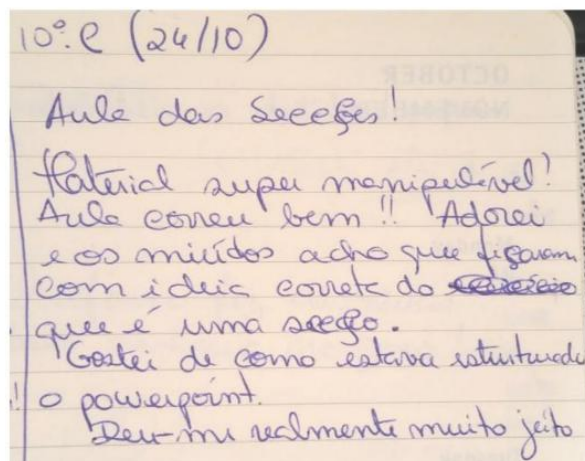 10º.C (24/10)
Aula das Secções!
Material super manipulável!
Aula correu bem!! Adorei
e os miúdos acho que ficaram
com ideia correta do
que é uma secção.
Gostei de como estava estruturado
! o powerpoint.
Deu-me realmente muito jeito